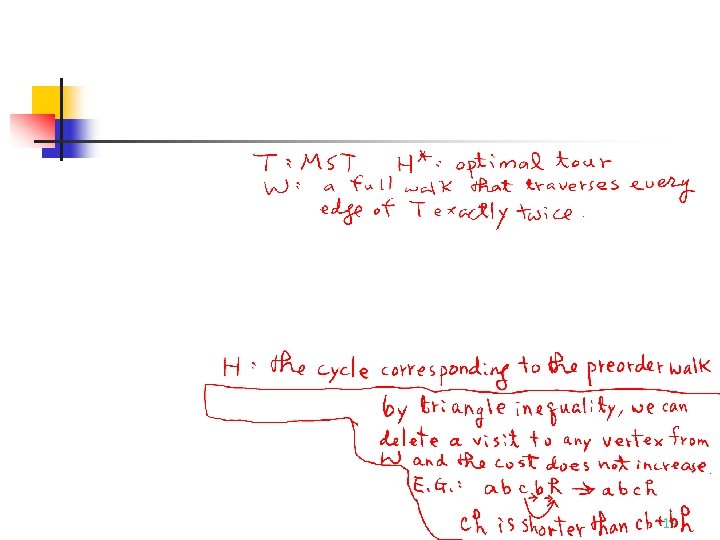 T: MST H*: optimal tour
W: a full walk that traverses every
edge of T exactly twice.
H: the cycle corresponding to the preorder walk
by triangle inequality, we can
delete a visit to any vertex from
W and the cost does not increase.
E.G.: abcbh → abch
ch is shorter than cb+bh